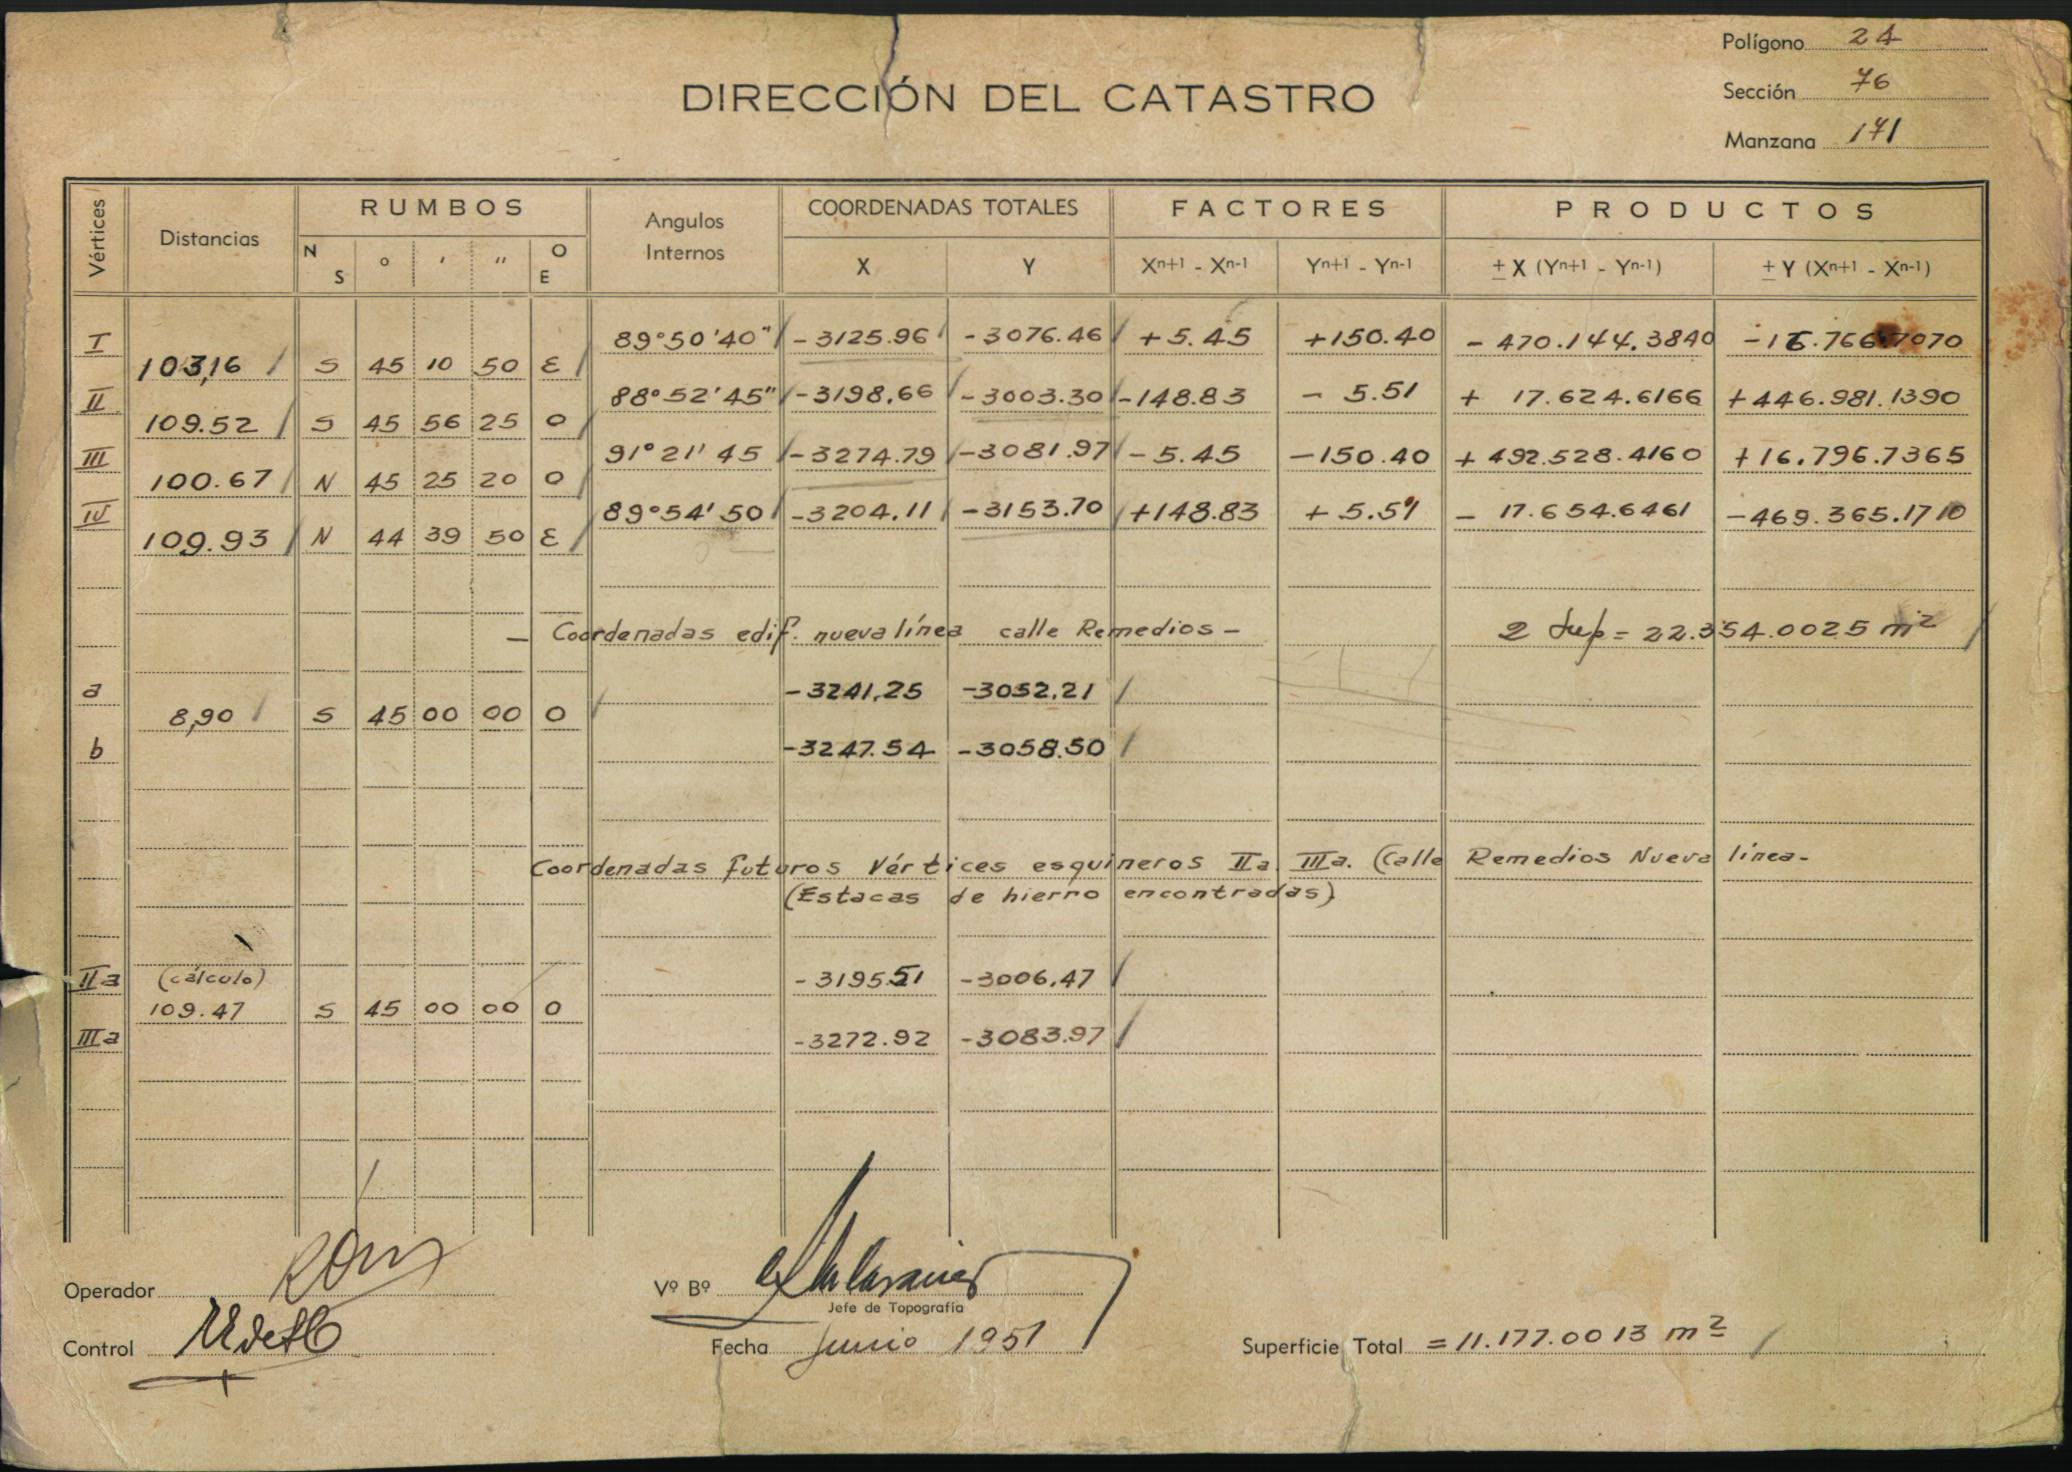 Polígono 24
DIRECCIÓN DEL CATASTRO
Sección 76
Manzana 171
Vértices Distancias RUMBOS Angulos Internos COORDENADAS TOTALES FACTORES PRODUCTOS
N S ° ' '' O E X Y Xn+1 - Xn-1 Yn+1 - Yn-1 ± X (Yn+1 - Yn-1) ± Y (Xn+1 - Xn-1)
I 89°50'40" -3125.96 -3076.46 +5.45 +150.40 -470.144.3840 -16.766.7070
103,16 S 45 10 50 E
II 88°52'45" -3198.66 -3003.30 -148.83 -5.51 + 17.624.6166 +446.981.1390
109.52 S 45 56 25 O
III 91°21' 45 -3274.79 -3081.97 -5.45 -150.40 +492.528.4160 +16.796.7365
100.67 N 45 25 20 O
IV 89°54' 50 -3204.11 -3153.70 +148.83 +5.51 - 17.654.6461 -469.365.1710
109.93 N 44 39 50 E
— Coordenadas edif. nueva línea calle Remedios — 2 Sup = 22.354.0025 m²
a -3241,25 -3052,21
8,90 S 45 00 00 O
b -3247.54 -3058.50
Coordenadas futuros Vértices esquineros IIa IIIa. (Calle Remedios Nueva línea-
(Estacas de hierro encontradas)
IIa (cálculo) -3195.51 -3006,47
109.47 S 45 00 00 O
IIIa -3272.92 -3083.97
Operador
Vº Bº
Jefe de Topografía
Control
Fecha Junio 1951
Superficie Total = 11.177.0013 m²